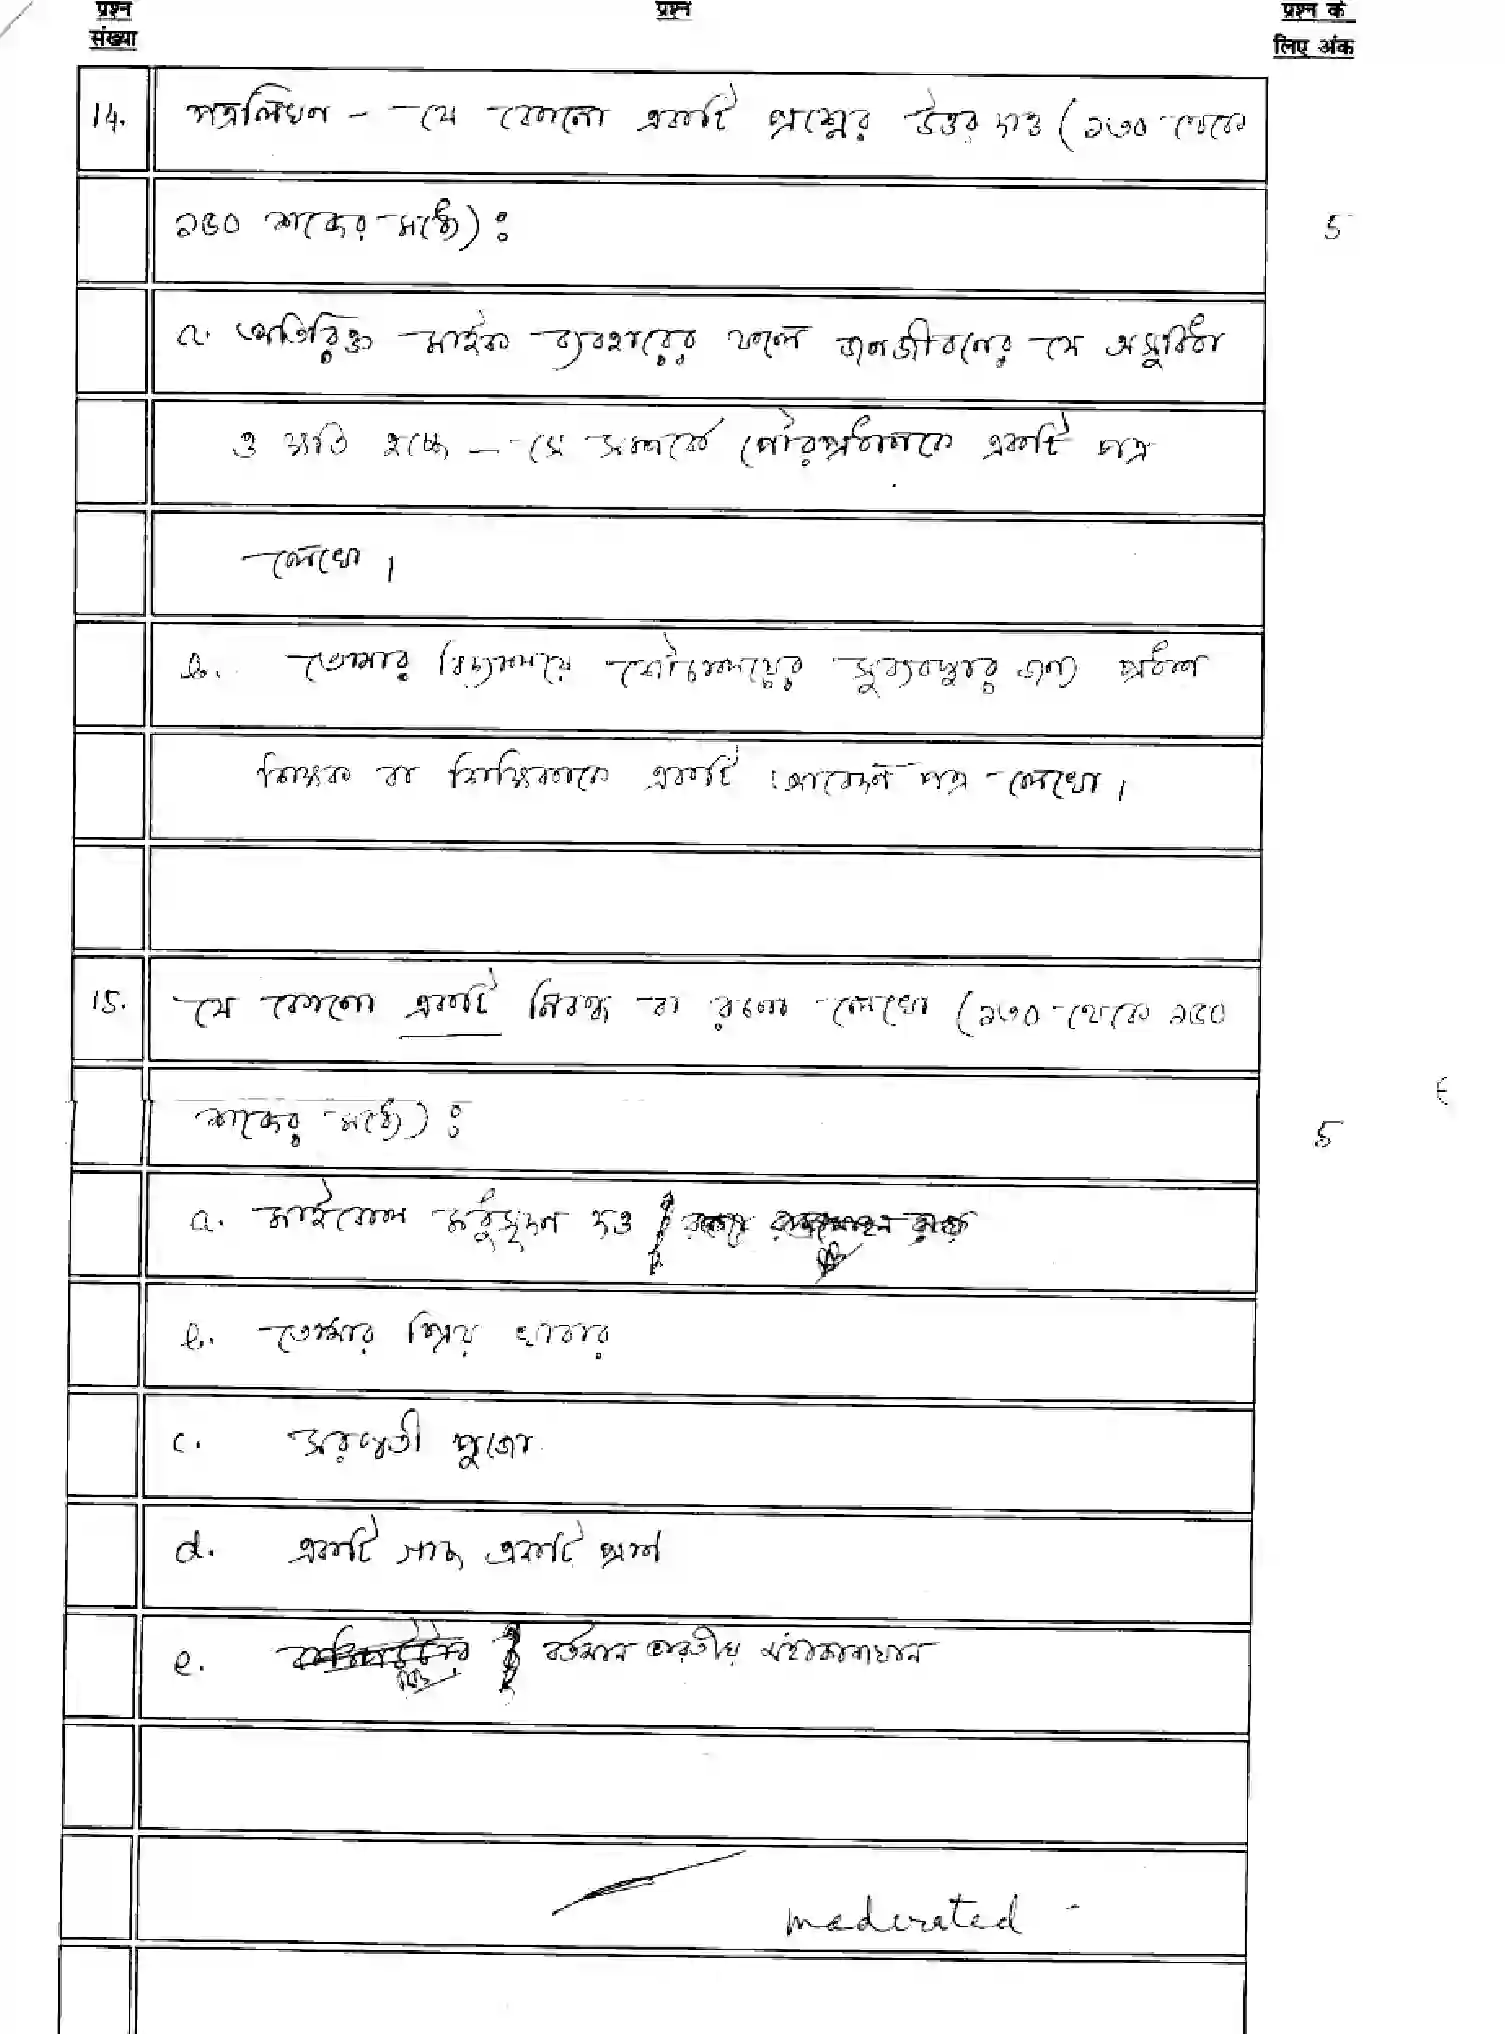 प्रश्न संख्या
प्रश्न
प्रश्न के लिए अंक
14. পত্রলিখন - যে কোনো একটি প্রশ্নের উত্তর দাও (১৩০ থেকে
১৫০ শব্দের মধ্যে) :
5
a. অতিরিক্ত মাইক ব্যবহারের ফলে জনজীবনের যে অসুবিধা
ও ক্ষতি হচ্ছে — সে সম্পর্কে পৌরপ্রধানকে একটি পত্র
লেখো ।
b. তোমার বিদ্যালয়ে শৌচালয়ের সুব্যবস্থার জন্য প্রধান
শিক্ষক বা শিক্ষিকাকে একটি আবেদন পত্র লেখো ।
15. যে কোনো একটি নিবন্ধ বা রচনা লেখো (১৩০ থেকে ১৫০
শব্দের মধ্যে) :
5
a. মাইকেল মধুসূদন দত্ত
b. তোমার প্রিয় খাবার
c. সরস্বতী পুজো
d. একটি গাছ একটি প্রাণ
e. বর্তমান ভারতীয় মহাকাশযান
moderated